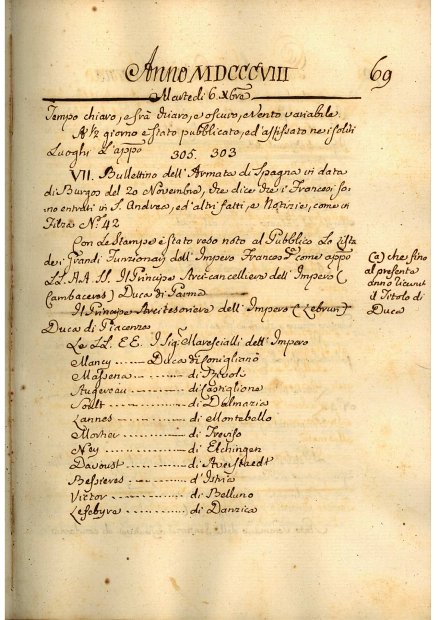 Anno MDCCCVIII
69
Martedi 6. Xbre
Tempo chiaro, e frà chiaro, e oscuro, e vento variabile.
A ½ giorno è stato pubblicato, ed affissato ne i soliti
Luoghi L'appo
305. 303
VII. Bullettino dell'Armata di Spagna in data
di Burgos del 20 Novembre, che dice che i Francesi so-
no entrati in S. Andrea, ed altri fatti, e Notizie, come in
Filza No. 42
Con le Stampe è stato reso noto al Pubblico La Lista
dei Grandi Funzionarj dell'Impero Francese come appo
LL. A.A. II. Il Principe Arcicancelliere dell'Impero (
Cambaceres) Duca di Parma
Il Principe Arcitesoriere dell'Impero (Lebrun)
Duca di Piacenza
Le LL. EE. I Sigri Marescialli dell'Impero
Mancy Duca di Conigliano
Massena di Rivoli
Augereau di Castiglione
Soult di Dalmazia
Lannes di Montebello
Mortier di Treviso
Ney di Elchingen
Davoust di Averstaedt
Bessieres d'Istria
Victor di Belluno
Lefebvre di Danzica
(a) che fino
al presente
anno
il Titolo di
Duca